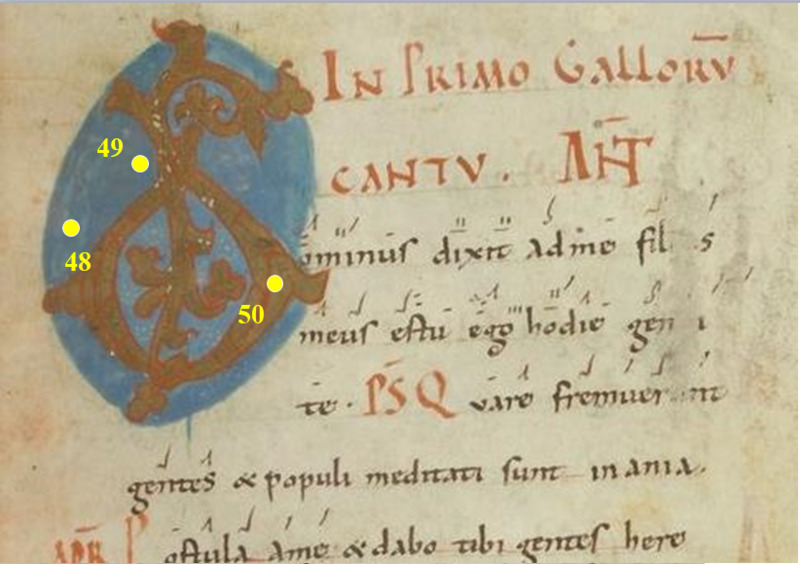 IN PRIMO GALLORV̄
CANTV. AN̄T
49
48
ominus dixit ad me fil s
50
meus es tu ego hodie gen i
te. P̄S Q vare fremuer nt
gentes & populi meditati sunt inania.
APR P ostula a me & dabo tibi gentes here